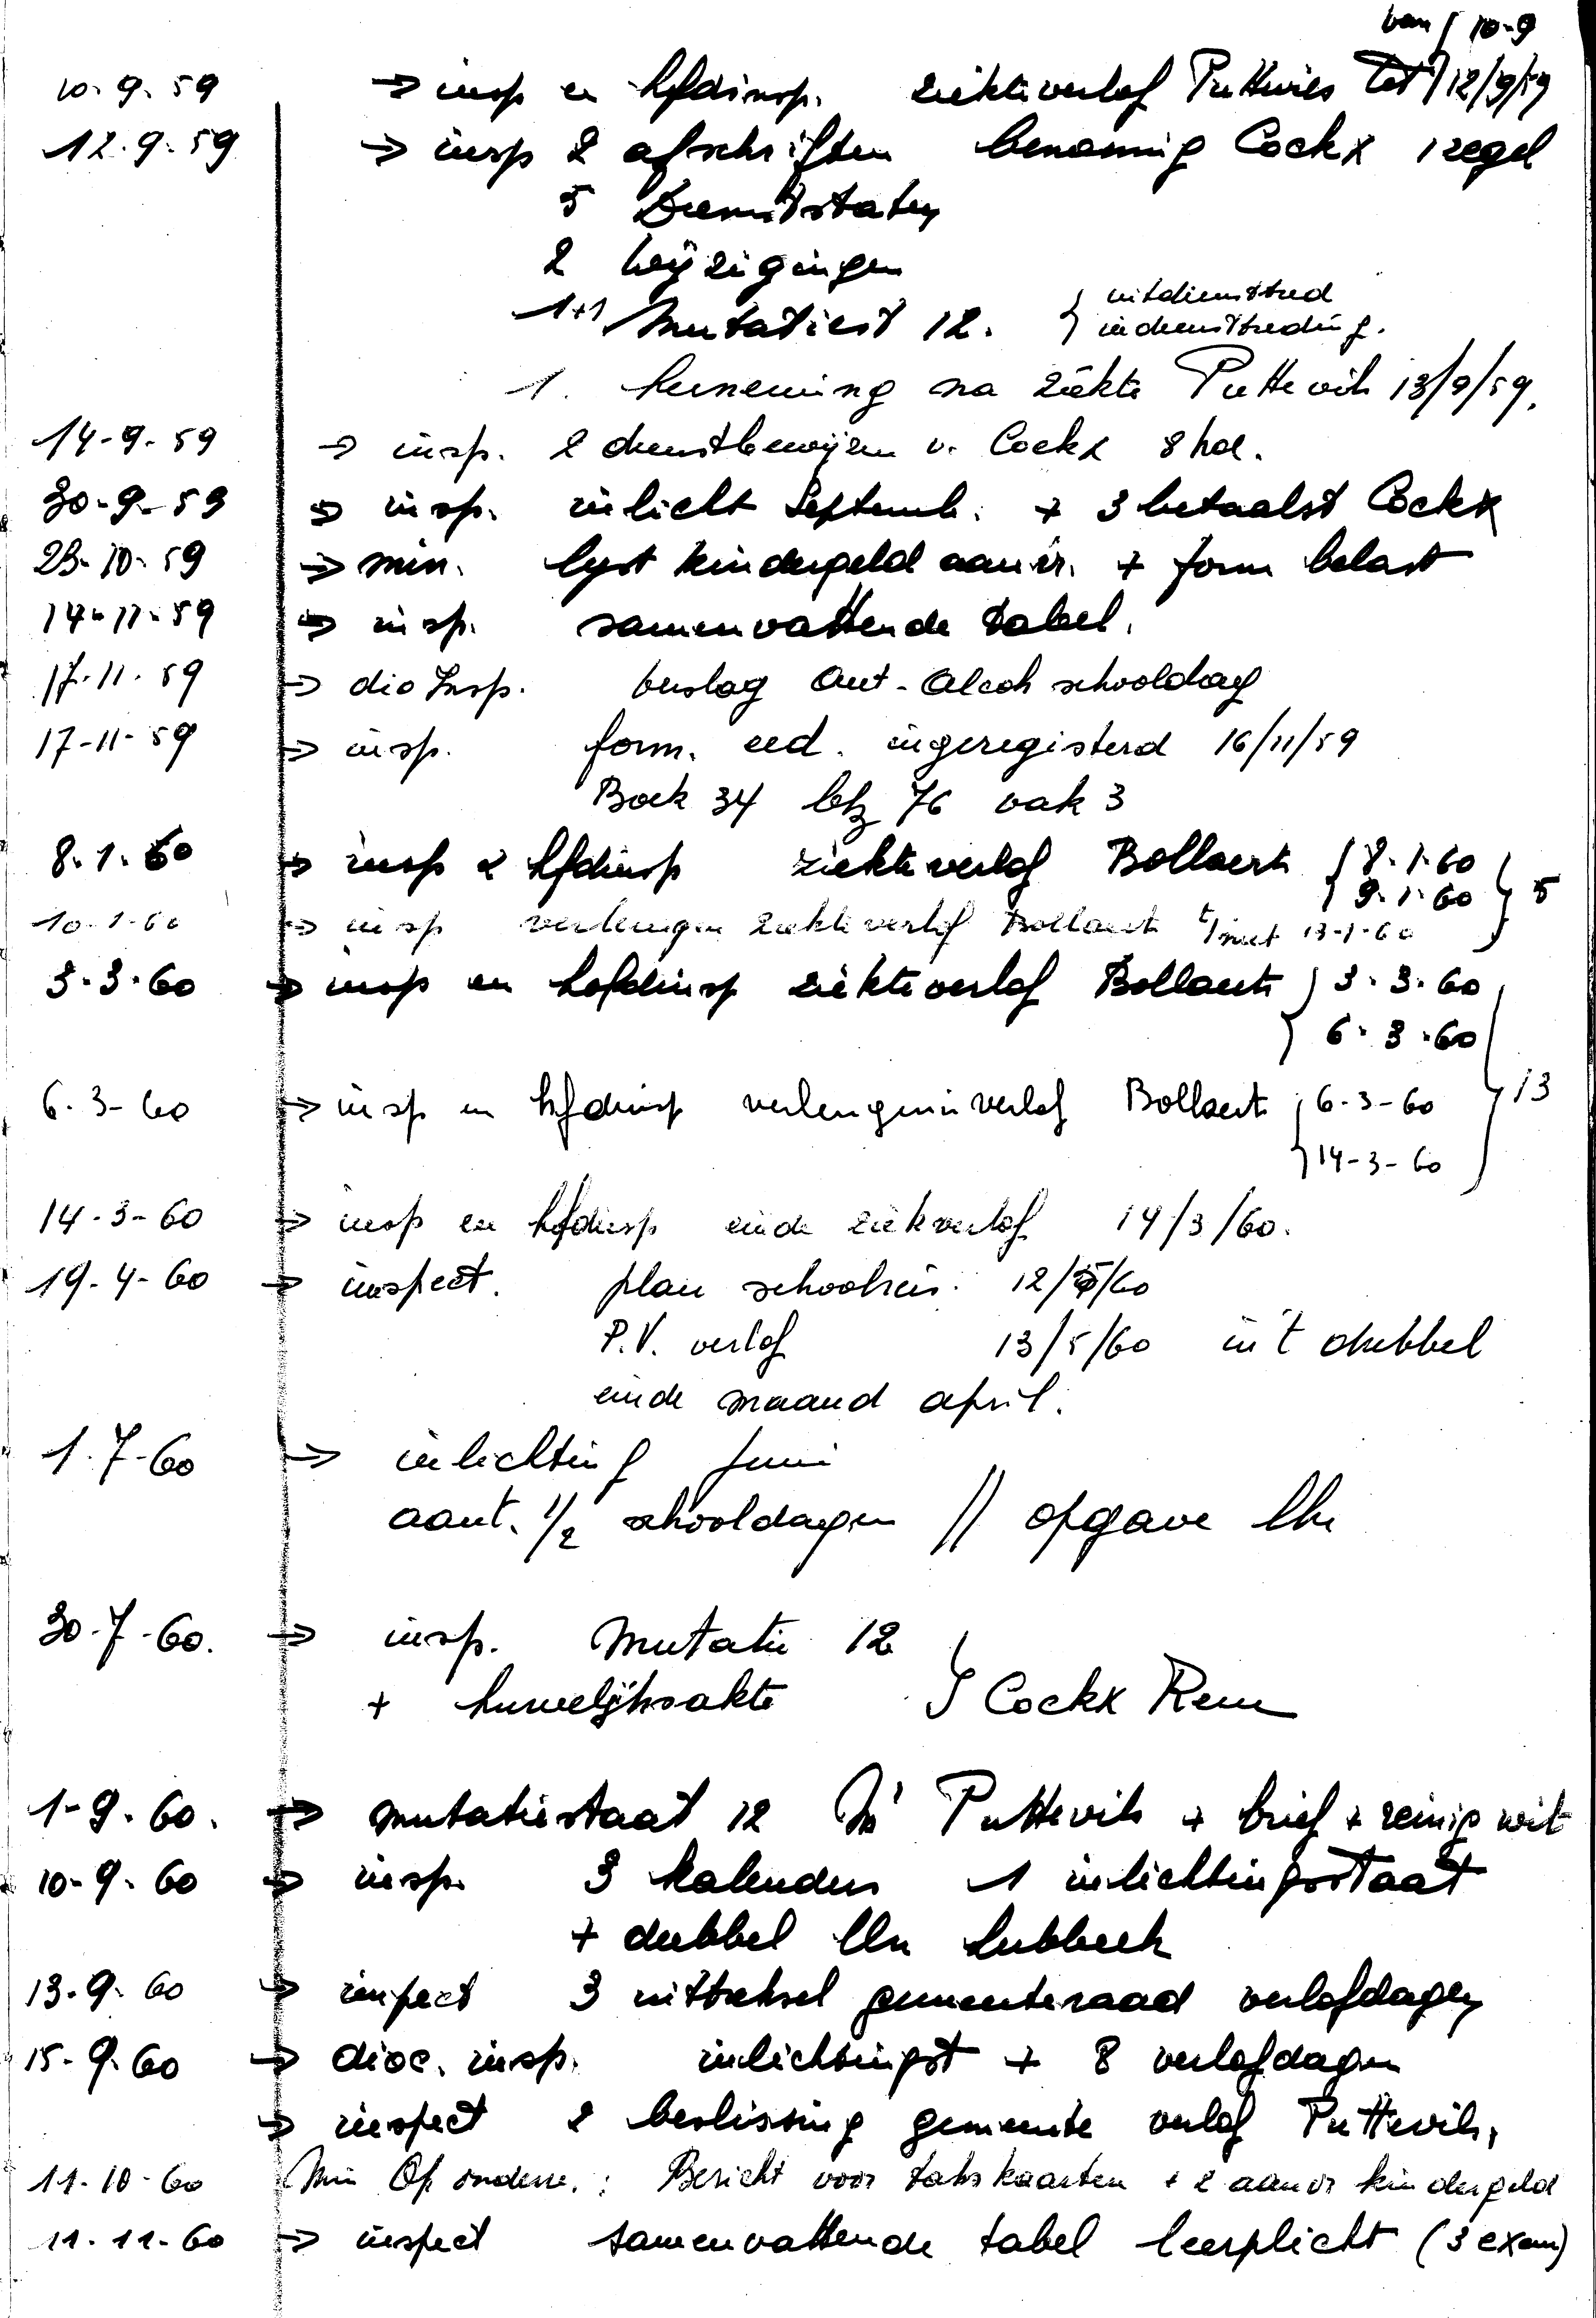 van 10-9
10.9.59 → insp en hfdinsp. ziekteverlof Puttevils tot 12/9/59
12.9.59 → insp 2 afschriften benoeming Cockx 1 zegel
5 Dienststaten
2 wijzigingen
1+1 Mutatiest 12. } uitdiensttred
indiensttreding.
1. herneming na ziekte Puttevils 13/9/59.
14-9-59 → insp. 2 dienstbewijzen v. Cockx 8 hol.
30-9-59 → insp. inlicht Septemb. + 3 betaalst Cockx
23-10-59 → min. lyst kindergeld aanvr. + form belast
14-11-59 → insp. samenvattende tabel.
17-11-59 → dio Insp. verslag Ant-Alcoh schooldag
17-11-59 → insp. form. eed. ingeregisterd 16/11/59
Boek 34 blz 76 vak 3
8.1.60 → insp & hfdinsp ziekteverlof Bollaert { 8.1.60
9.1.60 } 5
10.1.60 → insp verlengen ziekteverlof Bollaert t/met 13-1-60
3.3.60 → insp en hofdinsp ziekteverlof Bollaert } 3.3.60
6.3.60
6.3-60 → insp en hfdinsp verlengin verlof Bollaert { 6-3-60 } 13
14-3-60
14-3-60 → insp en hfdinsp einde ziekverlof 14/3/60.
19-4-60 → inspect. plan schoolreis. 12/5/60
P.V. verlof 13/5/60 in 't dubbel
einde maand april.
1.7-60 → inlichting Juni
aant. 1/2 schooldagen // opgave lln
30-7-60. → insp. Mutatie 12
+ huwelijksakte } Cockx Rem
1-9.60. → mutatiestaat 12 Puttevils + brief + reinig wit
10-9.60 → insp. 3 kalenders 1 inlichtingsstaat
+ dubbel lln Lubbeek
13.9.60 → inspect 3 uittreksel gemeenteraad verlofdagen
15-9.60 → dioc. insp. inlichtingst + 8 verlofdagen
→ inspect 2 beslissing gemeente verlof Puttevils,
11-10-60 Min Op onderw.: Bericht voor tabs kaarten + 2 aanvr kindergeld
11.11-60 → inspect samenvattende tabel leerplicht (3 exem)